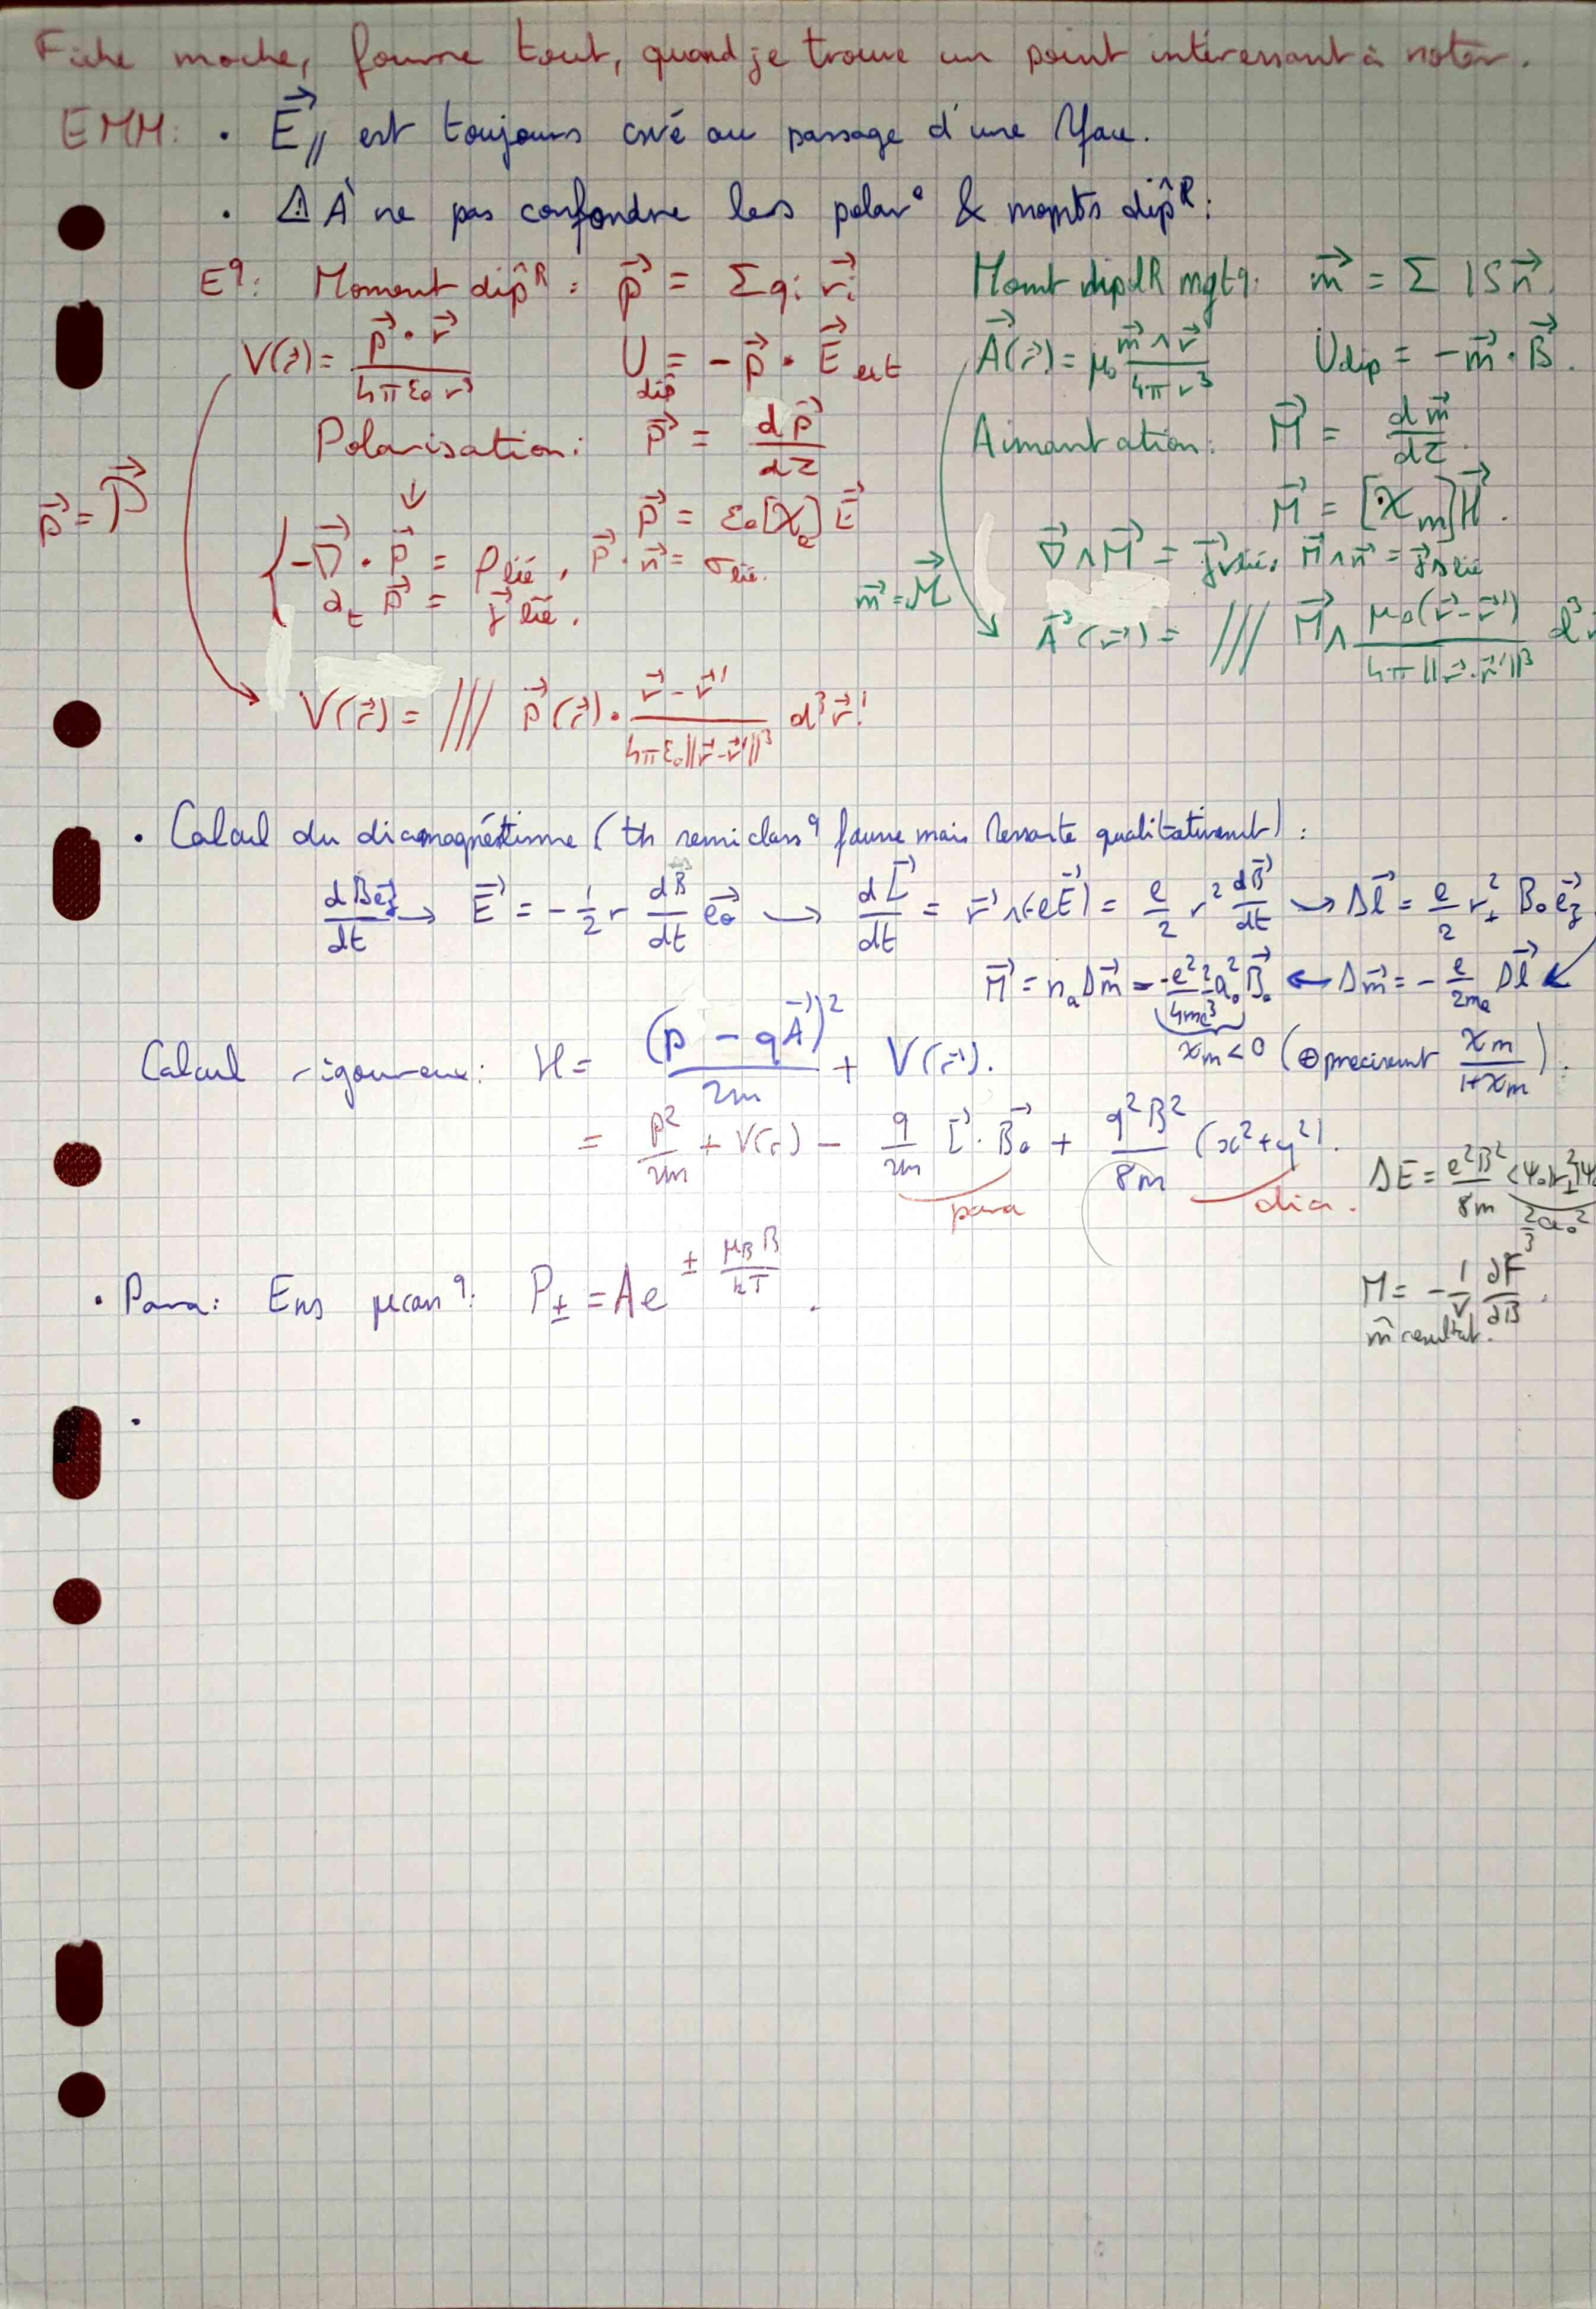 Fiche moche, fourre tout, quand je trouve un point intéressant à noter.
EMM: • E⃗// est toujours csvé au passage d'une
• ⚠ À ne pas confondre les polar° & momts dip^R:
E^q: Moment dip^R: p⃗ = Σ qi r⃗i
V(r⃗) = p⃗ · r⃗ / 4πε₀ r³ U_dip = - p⃗ · E⃗ext
Polarisation: P⃗ = dp⃗/dτ
p⃗ = P⃗
↓ P⃗ = ε₀[χe] E⃗
{ -∇⃗ · P⃗ = ρ lié, P⃗ · n⃗ = σ lié.
∂t P⃗ = j⃗ lié.
V(r⃗) = /// P⃗(r⃗) · r⃗ - r⃗' / 4πε₀||r⃗-r⃗'||³ d³r⃗'
Momt dipolR mgtq. m⃗ = Σ IS n⃗.
A⃗(r⃗) = μ₀ m⃗ ∧ r⃗ / 4π r³ Udip = - m⃗ · B⃗.
Aimantation: M⃗ = dm⃗/dτ.
M⃗ = [χm] H⃗.
∇⃗ ∧ M⃗ = j⃗v lié, M⃗ ∧ n⃗ = j⃗s lié
m⃗ = M⃗
A⃗(r⃗) = /// M⃗ ∧ μ₀(r⃗ - r⃗') / 4π||r⃗-r⃗'||³ d³r
• Calcul du diamagnétisme (th semi class^q fausse mais ressorte qualitativemt):
dBe⃗z/dt → E⃗ = - 1/2 r dB/dt e⃗θ → dL⃗/dt = r⃗ ∧ (-eE⃗) = e/2 r² dB⃗/dt → Δl⃗ = e/2 r⊥² B₀ e⃗z
M⃗ = na Δm⃗ = -e²/4me 2/3 a₀² B⃗₀ ← Δm⃗ = - e/2me Δl⃗
χm < 0 (⊕ precisemt χm/1+χm).
Calcul rigoureux: H = (p - qA⃗)²/2m + V(r⃗).
= p²/2m + V(r) - q/2m L⃗ · B⃗₀ + q²B²/8m (x²+y²).
para dia.
ΔE = e²B²/8m <ψ₀|r⊥²|ψ₀
2/3 a₀²
M = - 1/V ∂F/∂B.
m̂ resultat.
• Para: Ens μcan^q: P± = A e^(± μB B/kT).
•